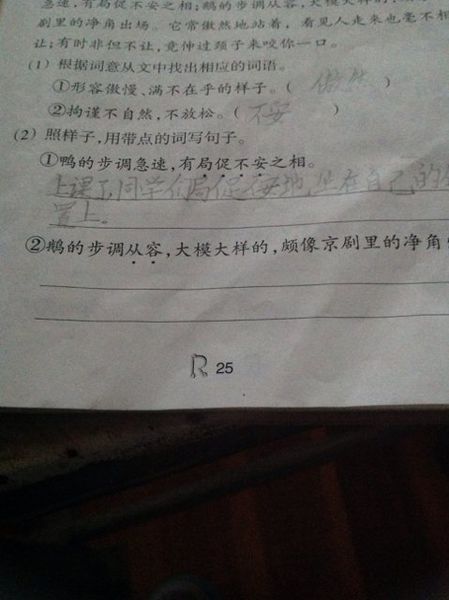 急速,有局促不安之相;鹅的步调从容,大模大样的,
剧里的净角出场。它常傲然地站着,看见人走来也毫不相
让;有时非但不让,竟伸过颈子来咬你一口。
(1) 根据词意从文中找出相应的词语。
①形容傲慢、满不在乎的样子。( 傲然 )
②拘谨不自然,不放松。( 不安 )
(2) 照样子,用带点的词写句子。
①鸭的步调急速,有局促不安之相。
上课了,同学们局促不安地坐在自己的
置上。
②鹅的步调从容,大模大样的,颇像京剧里的净角
R 25